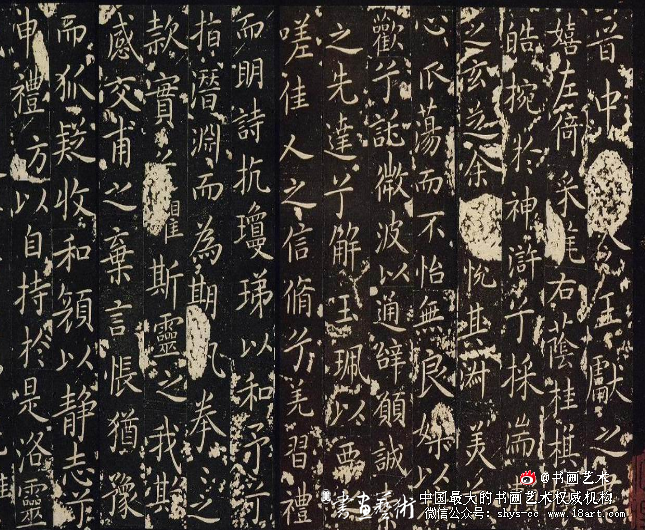 晋中王獻之
嬉左倚采旄右蔭桂旗
皓捥於神滸兮採湍
之玄芝余悅其淑美
心爪蕩而不怡無良媒以
歡兮託微波以通辭願誠
之先達兮解玉珮以要
嗟佳人之信脩兮羌習禮
而明詩抗瓊珶以和予兮
指潛淵而為期執拳之
款實懼斯靈之我欺
感交甫之棄言悵猶豫
而狐疑收和顏以静志兮
申禮方以自持於是洛靈
@书画艺术
書画藝術 中国最大的书画艺术权威机构
微信公众号: shys-cc www.18art.com